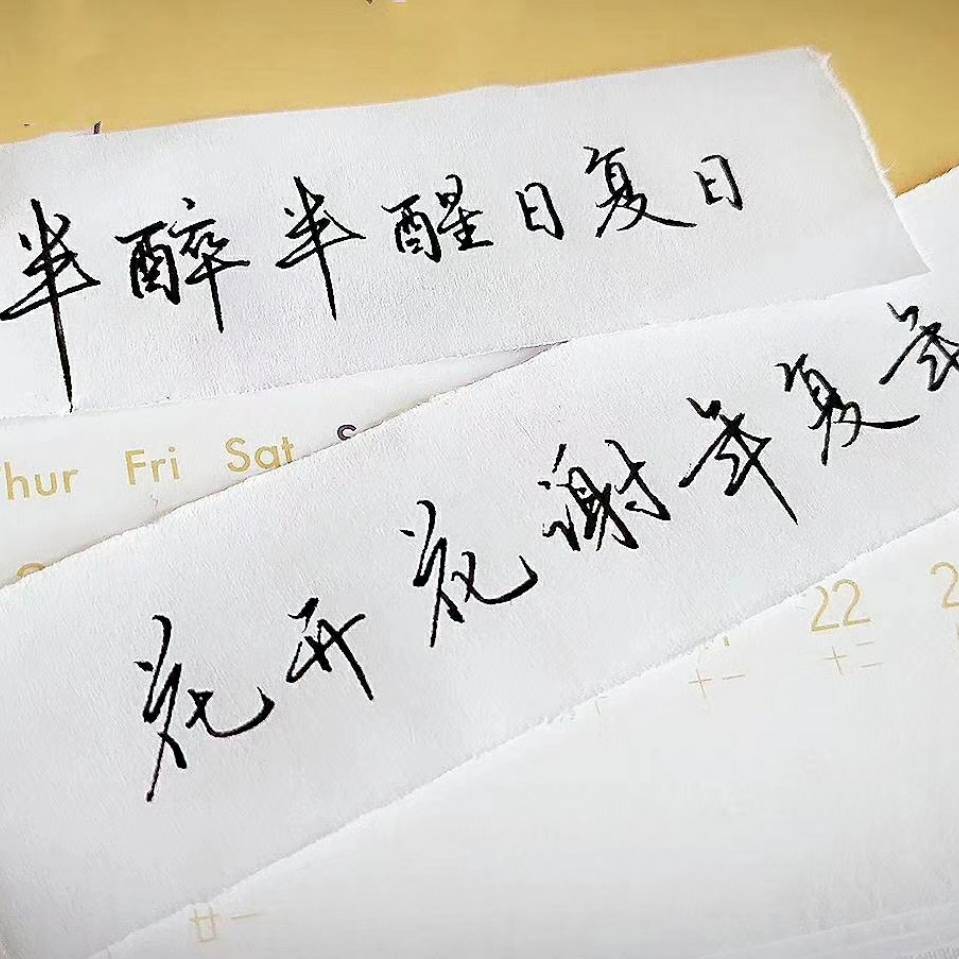 半醉半醒日复日
Thur Fri Sat S
花开花谢年复年
22 2
十一 十二
廿一